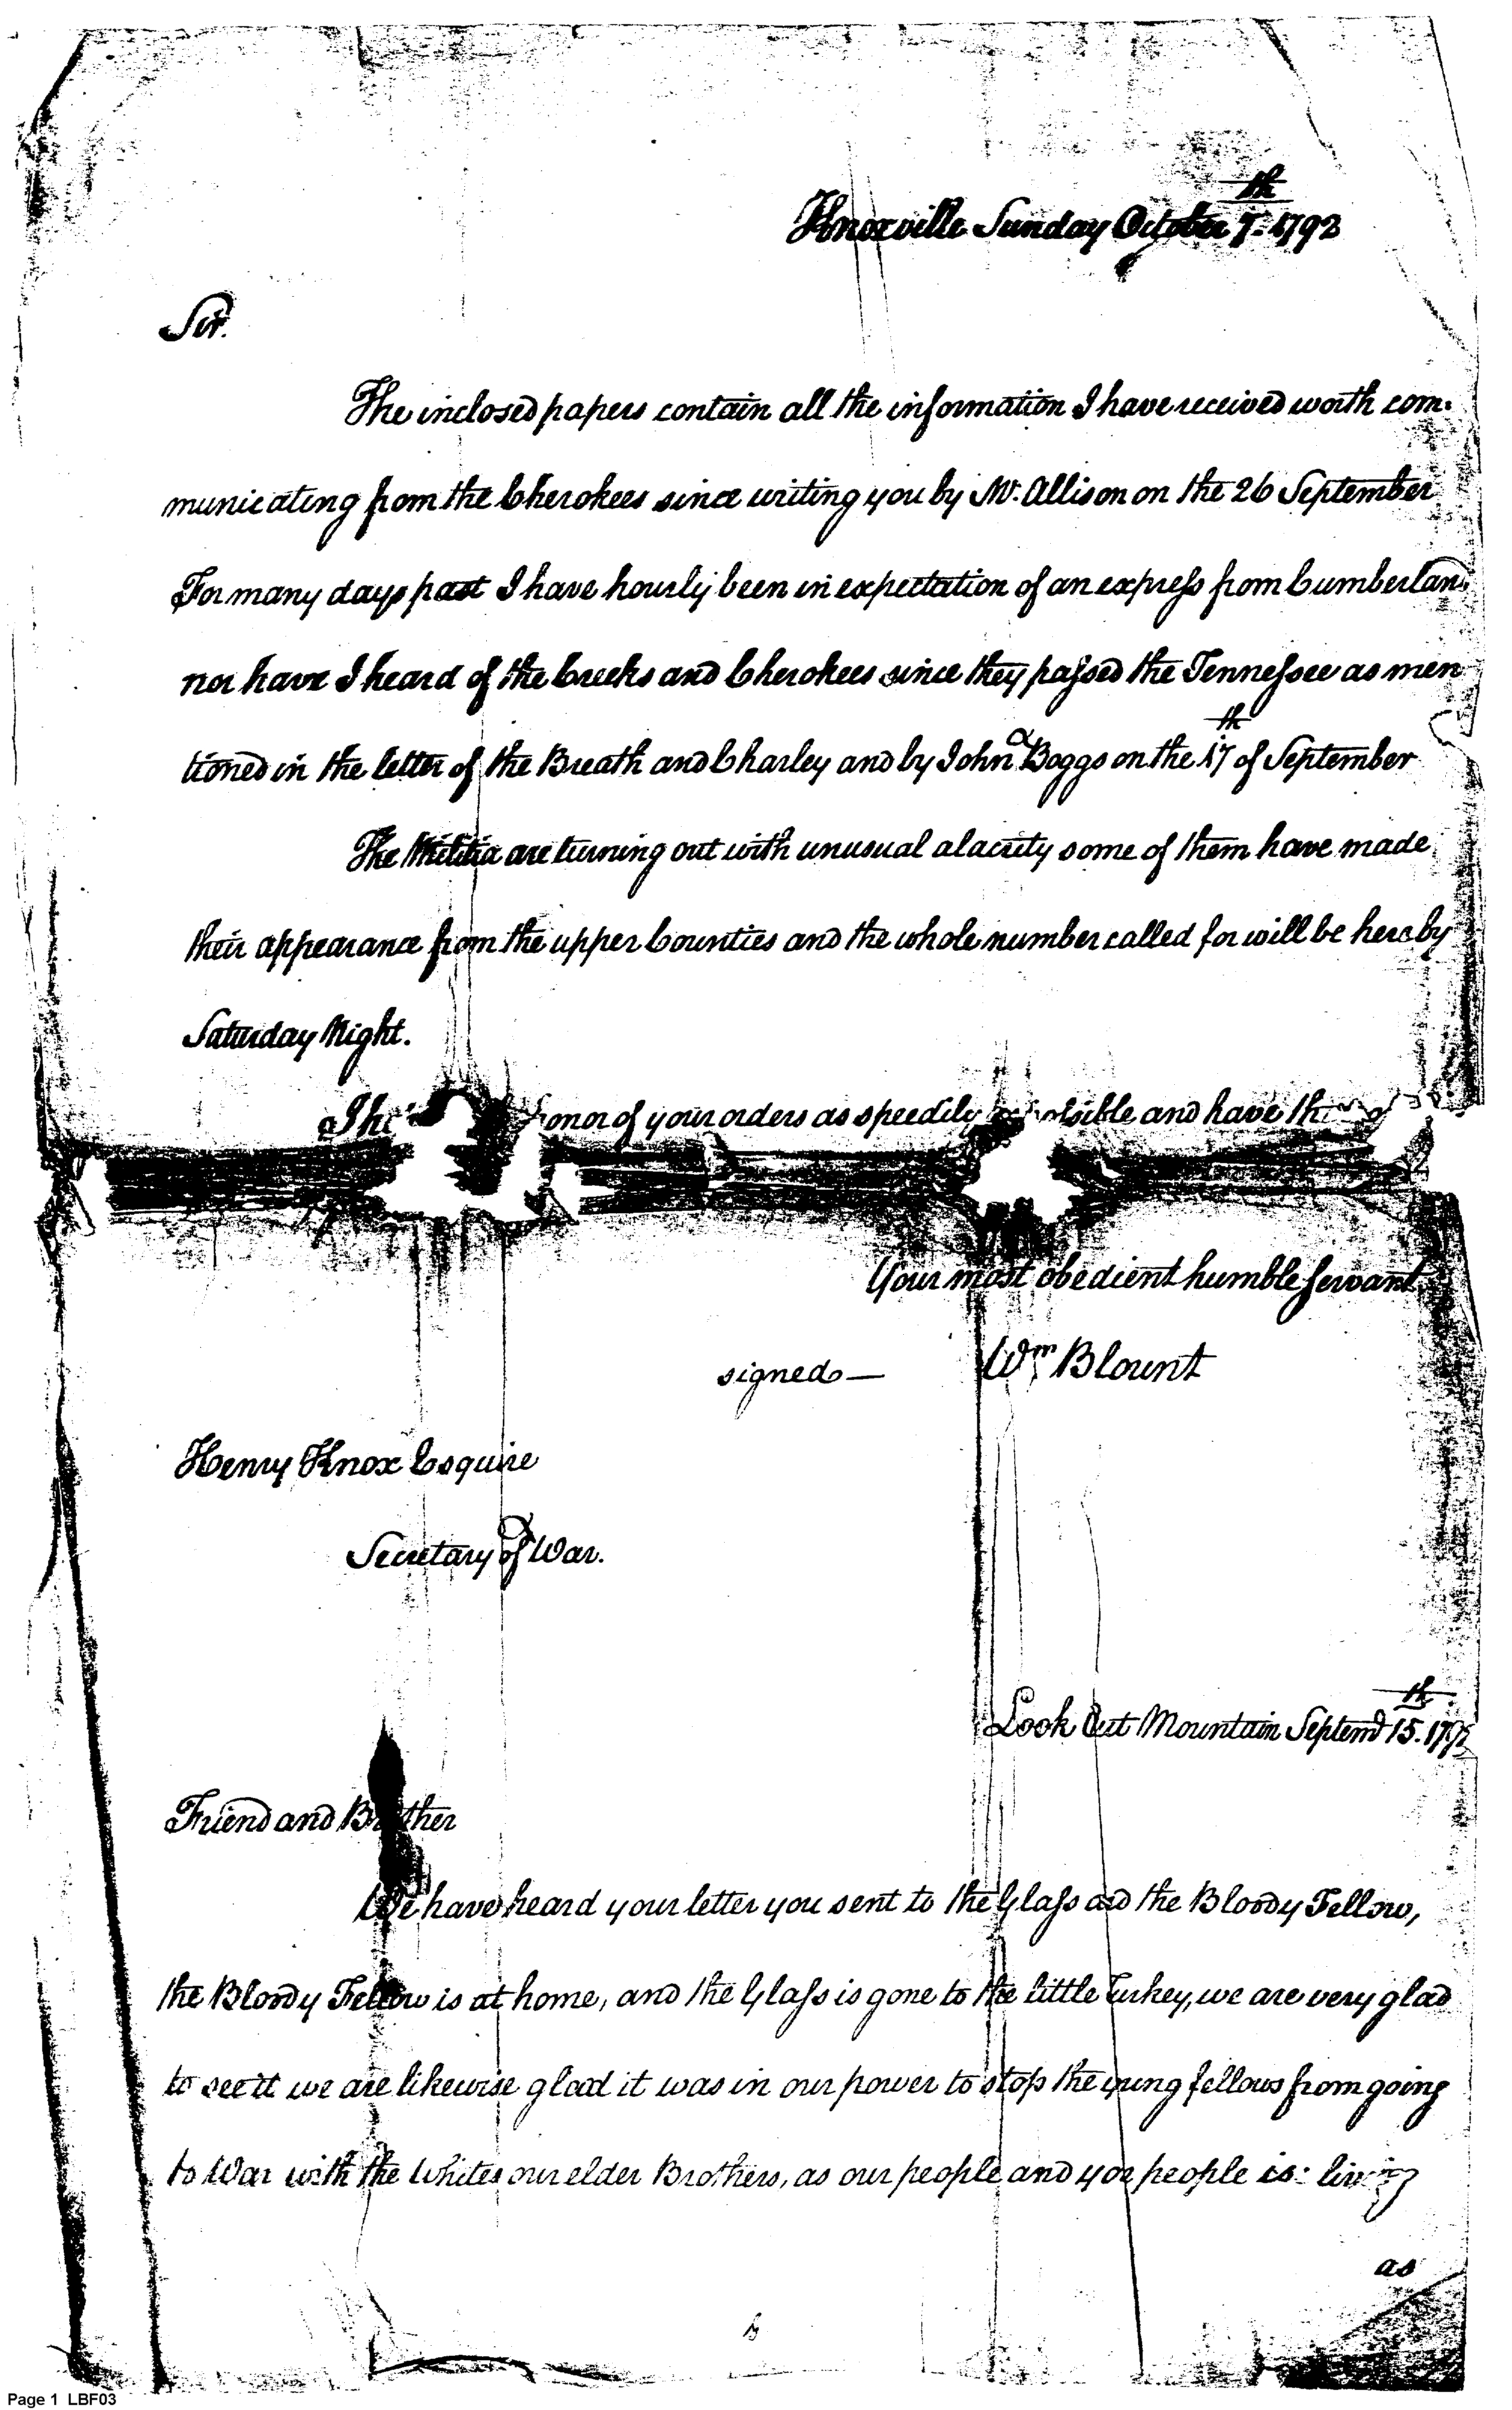 Knoxville Sunday October 7th 1792
Sir.
The inclosed papers contain all the information I have received worth com-
municating from the Cherokees since writing you by Mr. Allison on the 26 September
For many days past I have hourly been in expectation of an express from Cumberland
nor have I heard of the Creeks and Cherokees since they passed the Tennessee as men
tioned in the letter of the Breath and Charley and by John Boggs on the 17th of September
The Militia are turning out with unusual alacrity some of them have made
their appearance from the upper Counties and the whole number called for will be here by
Saturday Night.
honor of your orders as speedily as possible and have the
Your most obedient humble servant
signed — Wm Blount
Henry Knox Esquire
Secretary of War.
Look Out Mountain Septemr 15th. 1792
Friend and Brother
We have heard your letter you sent to the Glass and the Bloody Fellow,
the Bloody Fellow is at home, and the Glass is gone to the little Turkey, we are very glad
to see it we are likewise glad it was in our power to stop the yung fellows from going
to War with the Whites our elder Brothers, as our people and your people is: living
as
Page 1 LBF03